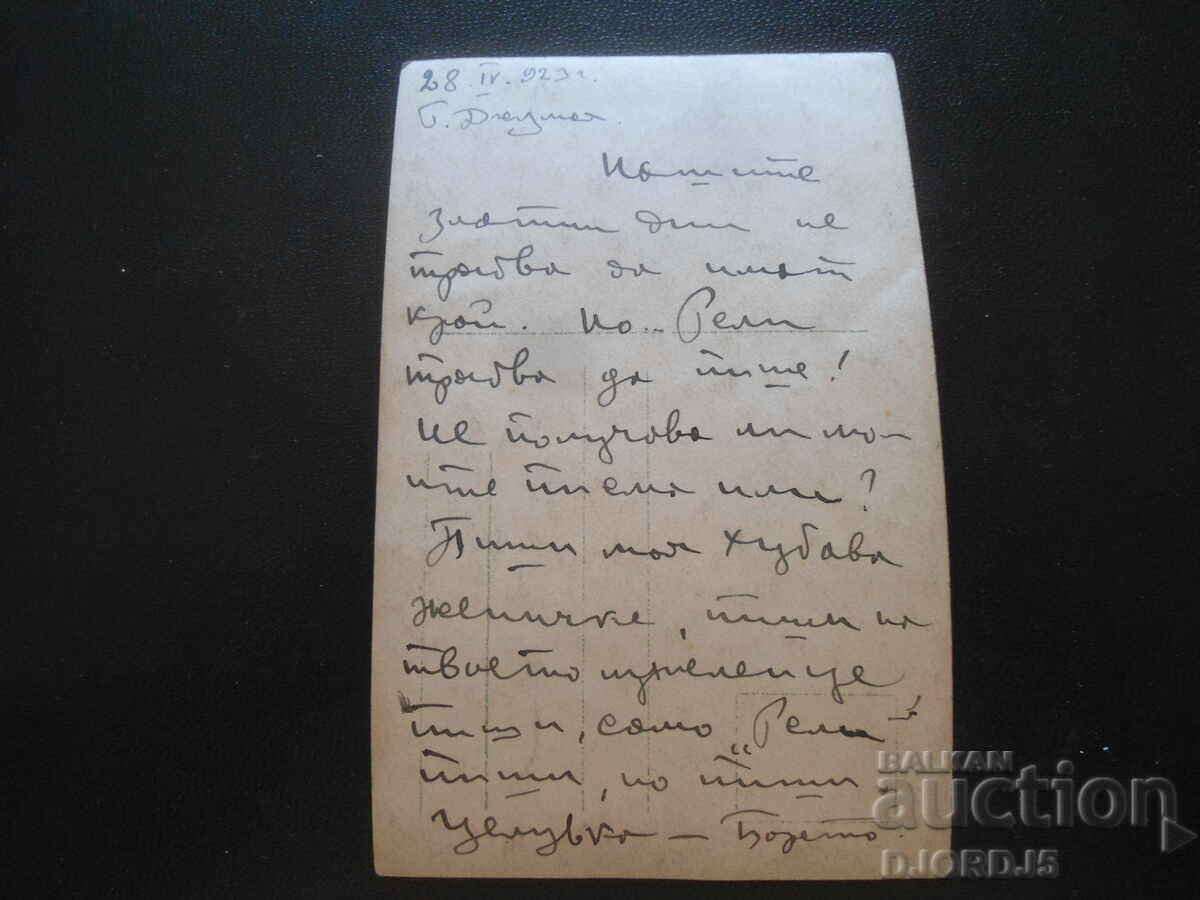 28. IV. 923 г.
Г. Джумая.
Нашите
златни дни не
трябва да имат
край. Но.. Рели
трябва да пише!
не получава ли мо-
ите писма или?
Пиши моя хубава
женичке, пиши на
твоето мъжленце
пиши, само „Рели“
пиши, но пиши.
Целувка — Борето.
BALKAN
auction
DJORDJ5